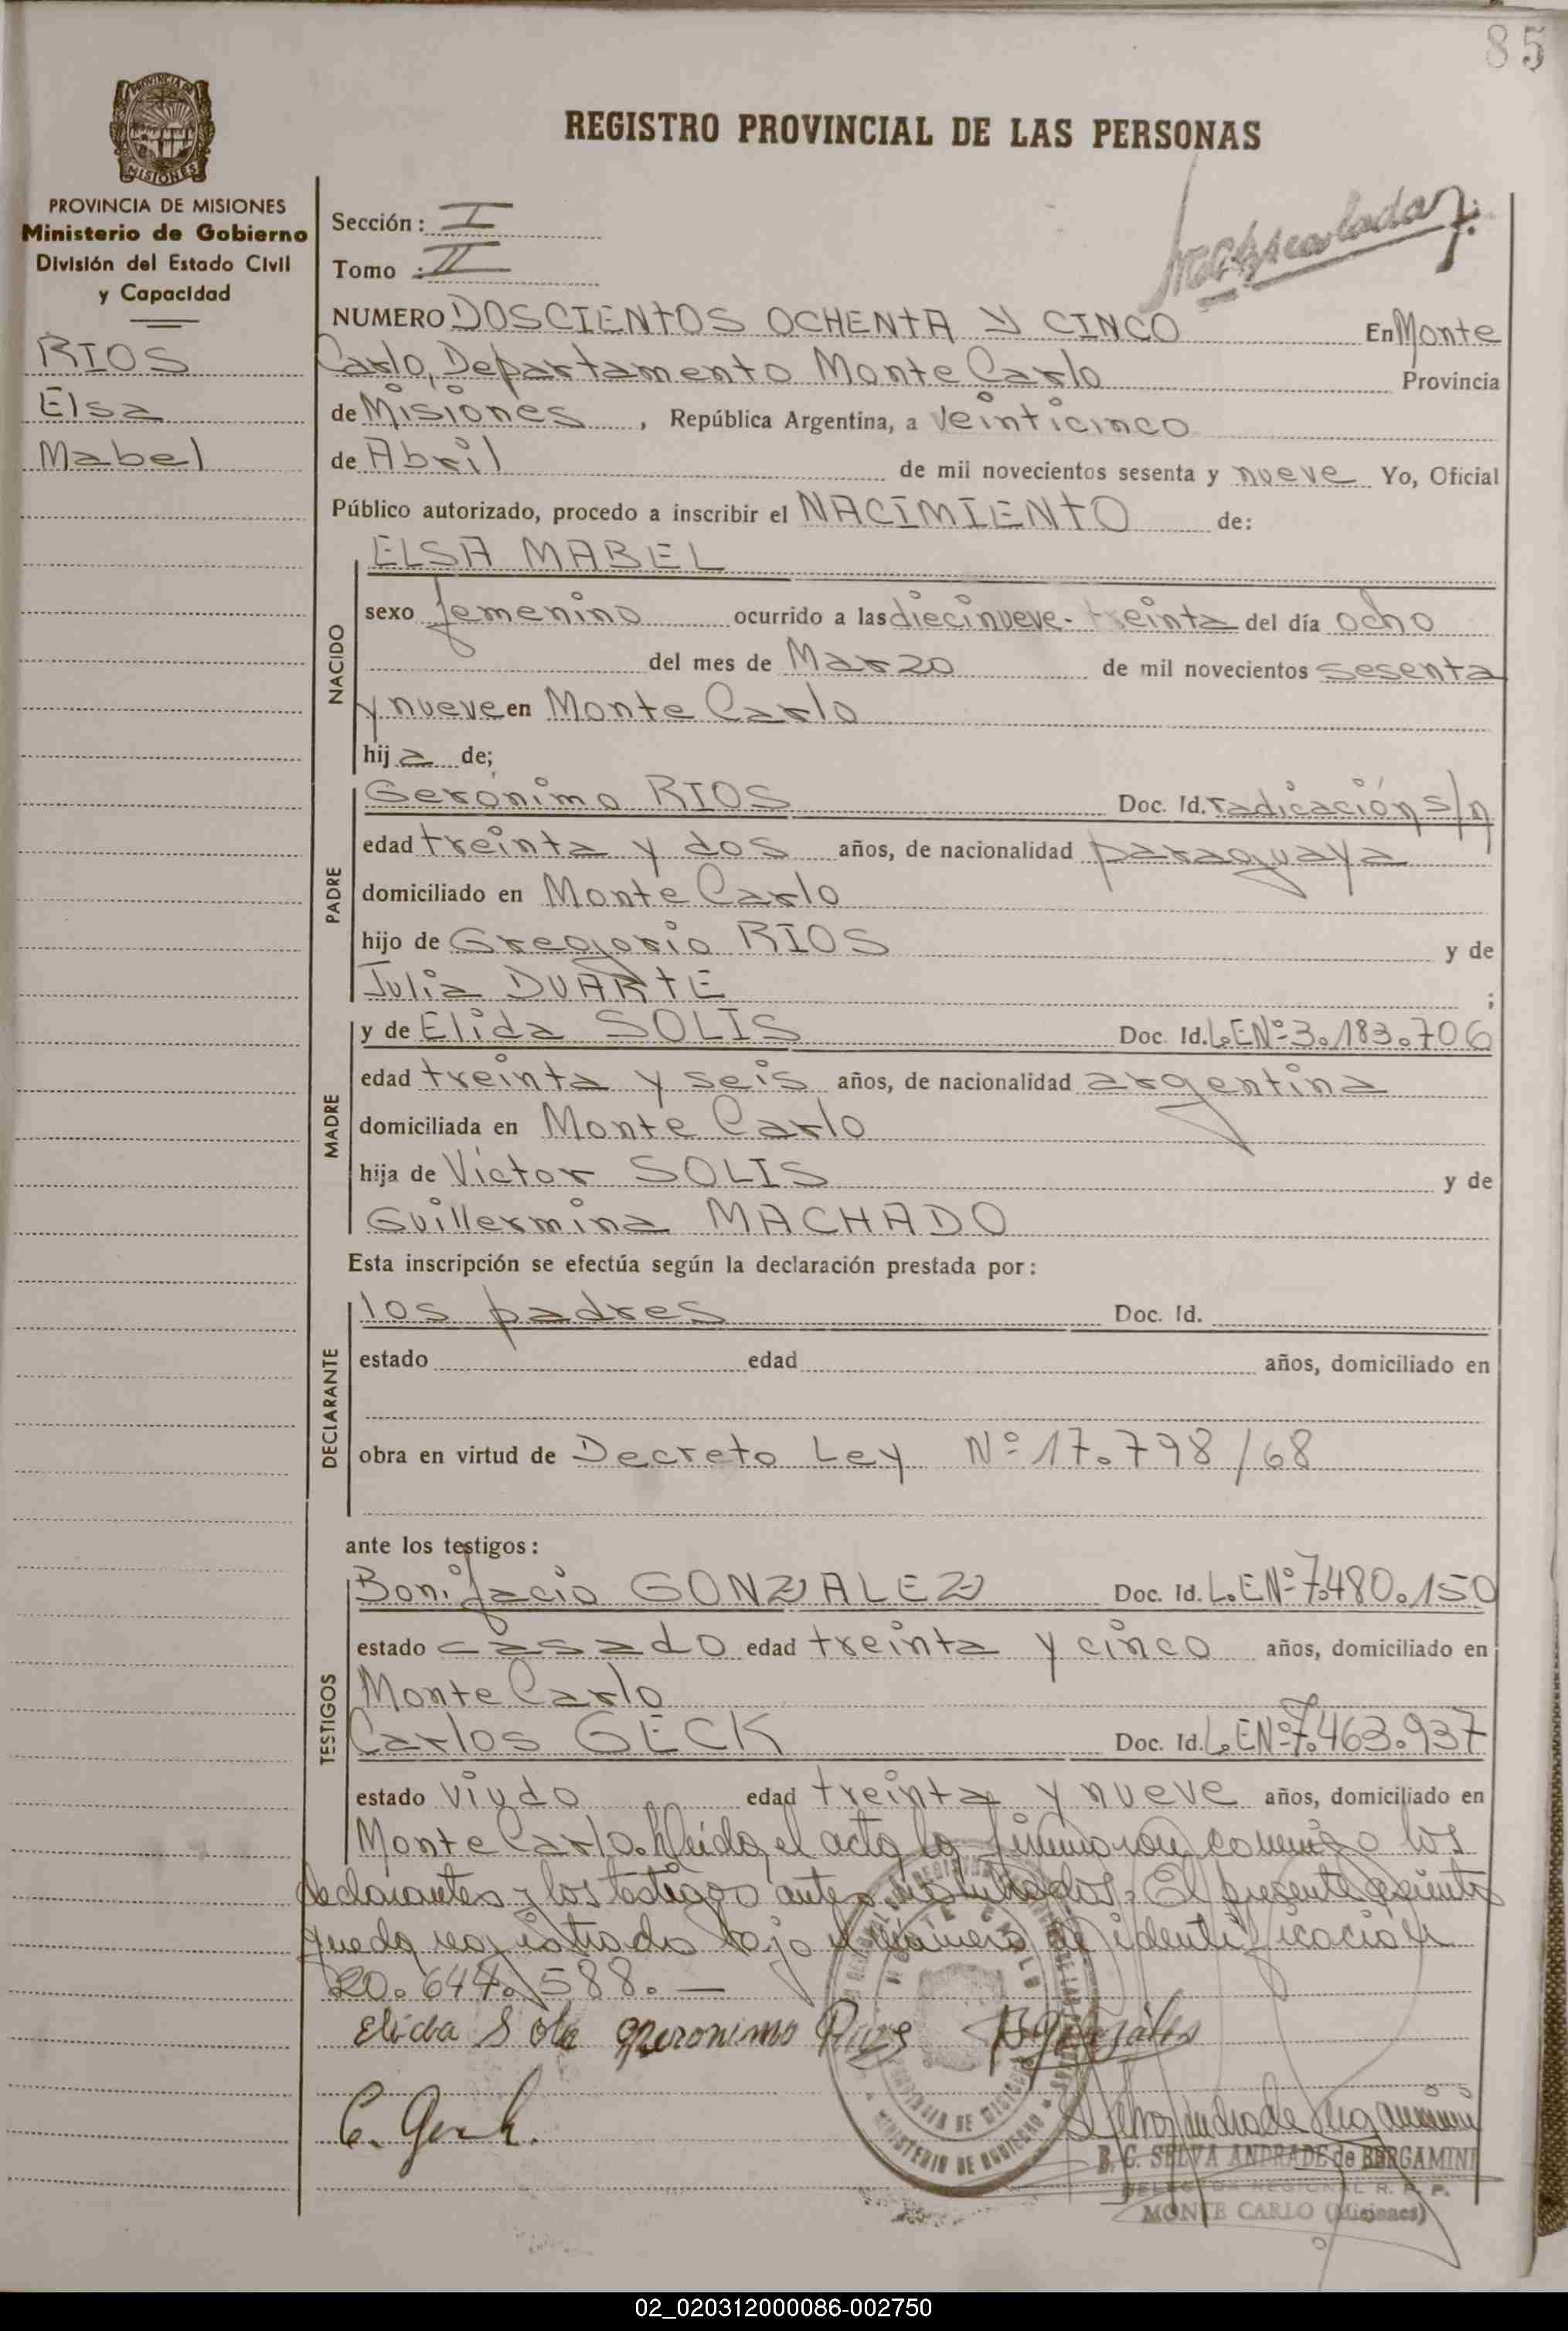 85
REGISTRO PROVINCIAL DE LAS PERSONAS
PROVINCIA DE MISIONES
MISIONES
PROVINCIA DE MISIONES
Ministerio de Gobierno
División del Estado Civil
y Capacidad
RIOS
Elsa
Mabel
Sección: I
Tomo : II
NUMERO DOSCIENTOS OCHENTA Y CINCO En Monte
Carlo, Departamento Monte Carlo Provincia
de Misiones, República Argentina, a veinticinco
de Abril de mil novecientos sesenta y nueve Yo, Oficial
Público autorizado, procedo a inscribir el NACIMIENTO de:
NACIDO
ELSA MABEL
sexo femenino ocurrido a las diecinueve - treinta del día ocho
del mes de Marzo de mil novecientos sesenta
y nueve en Monte Carlo
hija de;
PADRE
Gerónimo RIOS Doc. Id. radicación s/n
edad treinta y dos años, de nacionalidad paraguaya
domiciliado en Monte Carlo
hijo de Gregorio RIOS y de
Julia DUARTE ;
MADRE
y de Elida SOLIS Doc. Id. L.E.Nº 3.183.706
edad treinta y seis años, de nacionalidad argentina
domiciliada en Monte Carlo
hija de Víctor SOLIS y de
Guillermina MACHADO
Esta inscripción se efectúa según la declaración prestada por:
DECLARANTE
los padres Doc. Id.
estado edad años, domiciliado en
obra en virtud de Decreto Ley Nº 17.798/68
ante los testigos:
TESTIGOS
Bonifacio GONZALEZ Doc. Id. L.E.Nº 7.480.150
estado casado edad treinta y cinco años, domiciliado en
Monte Carlo
Carlos GECK Doc. Id. L.E.Nº 7.463.937
estado viudo edad treinta y nueve años, domiciliado en
Monte Carlo. Leída el acta la firmaron conmigo los
declarantes y los testigos antes nombrados. El presente asiento
queda registrado bajo el número de identificación
20.644.588. —
Elida Solis Geronimo Rios B Gonzáles
C. Geck.
Selva Andrade de Bergamini
B. G. SELVA ANDRADE de BERGAMINI
REGIONAL R. P. P.
MONTE CARLO (Misiones)
02_020312000086-002750